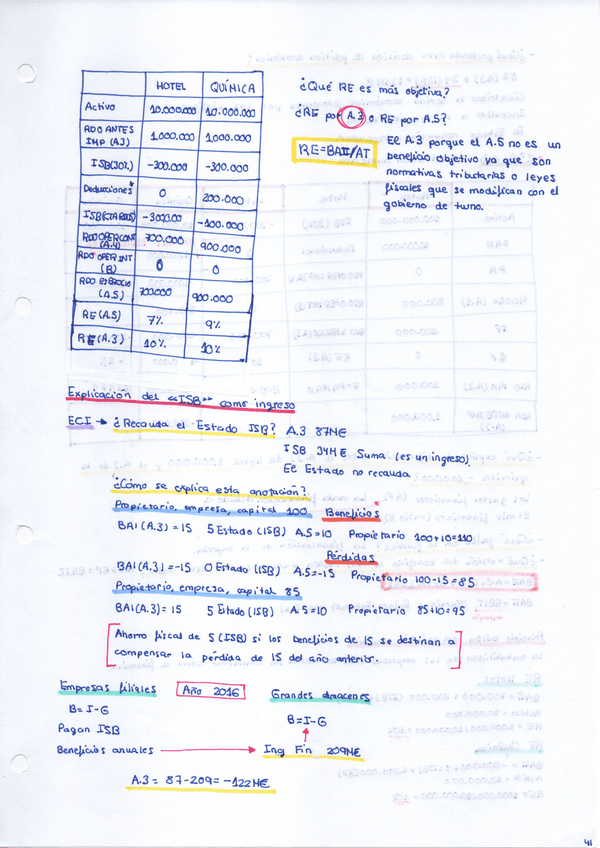 HOTEL QUÍMICA
Activo 10.000.000 10.000.000
RDO ANTES IMP (A.3) 1.000.000 1.000.000
ISB (30%) -300.000 -300.000
Deducciones 0 200.000
-300.00 -100.000
RDO OPER CONT (A.4) 700.000 900.000
RDO OPER INT (B) 0 0
(A.5) 700.000 900.000
RE (A.5) 7% 9%
RE (A.3) 10% 10%
¿Qué RE es más objetiva?
¿RE por A.3 o RE por A.5?
RE=BAII/AT
El A.3 porque el A.5 no es un
beneficio objetivo ya que son
normativas tributarias o leyes
fiscales que se modifican con el
gobierno de turno.
Explicación del «ISB» como ingreso
ECI → ¿Recauda el Estado ISB? A.3 87M€
ISB 34M€ Suma (es un ingreso).
El Estado no recauda
¿Cómo se explica esta anotación?
Propietario, empresa, capital 100 Beneficios
BAI (A.3) = 15 5 Estado (ISB) A.5=10 Propietario 100+10=110
Pérdidas
BAI (A.3) = -15 0 Estado (ISB) A.5=-15 Propietario 100-15=85
Propietario, empresa, capital 85
BAI (A.3) = 15 5 Estado (ISB) A.5=10 Propietario 85+10=95
Ahorro fiscal de 5 (ISB) si los beneficios de 15 se destinan a
compensar la pérdida de 15 del año anterior.
Empresas filiales Año 2016 Grandes almacenes
B=I-G B=I-G
Pagan ISB
Beneficios anuales → Ing Fin 209M€
A.3 = 87-209 = -122M€
41